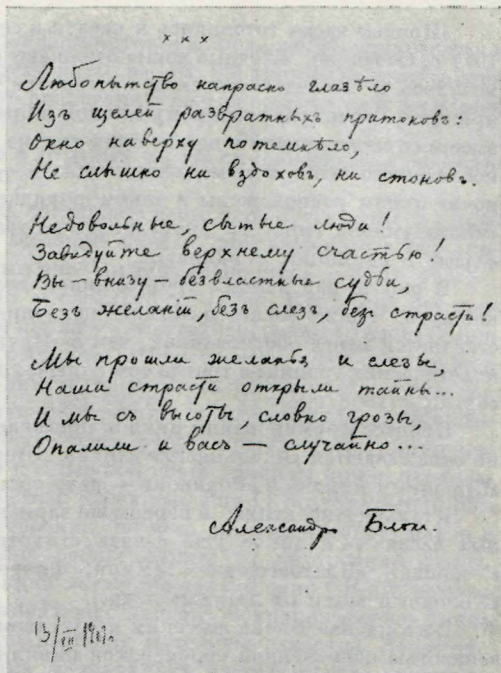 × × ×
Любопытство напрасно глазѣло
Изъ щелей развратныхъ притоновъ:
Окно наверху потемнѣло,
Не слышно ни вздоховъ, ни стоновъ.
Недовольные, сытые люди!
Завидуйте верхнему счастью!
Вы – внизу – безвластные судьи,
Безъ желаній, безъ слезъ, безъ страсти!
Мы прошли желанья и слезы,
Наши страсти открыли тайны...
И мы съ высоты, словно грозы,
Опалили и васъ – случайно...
Александръ Блокъ.